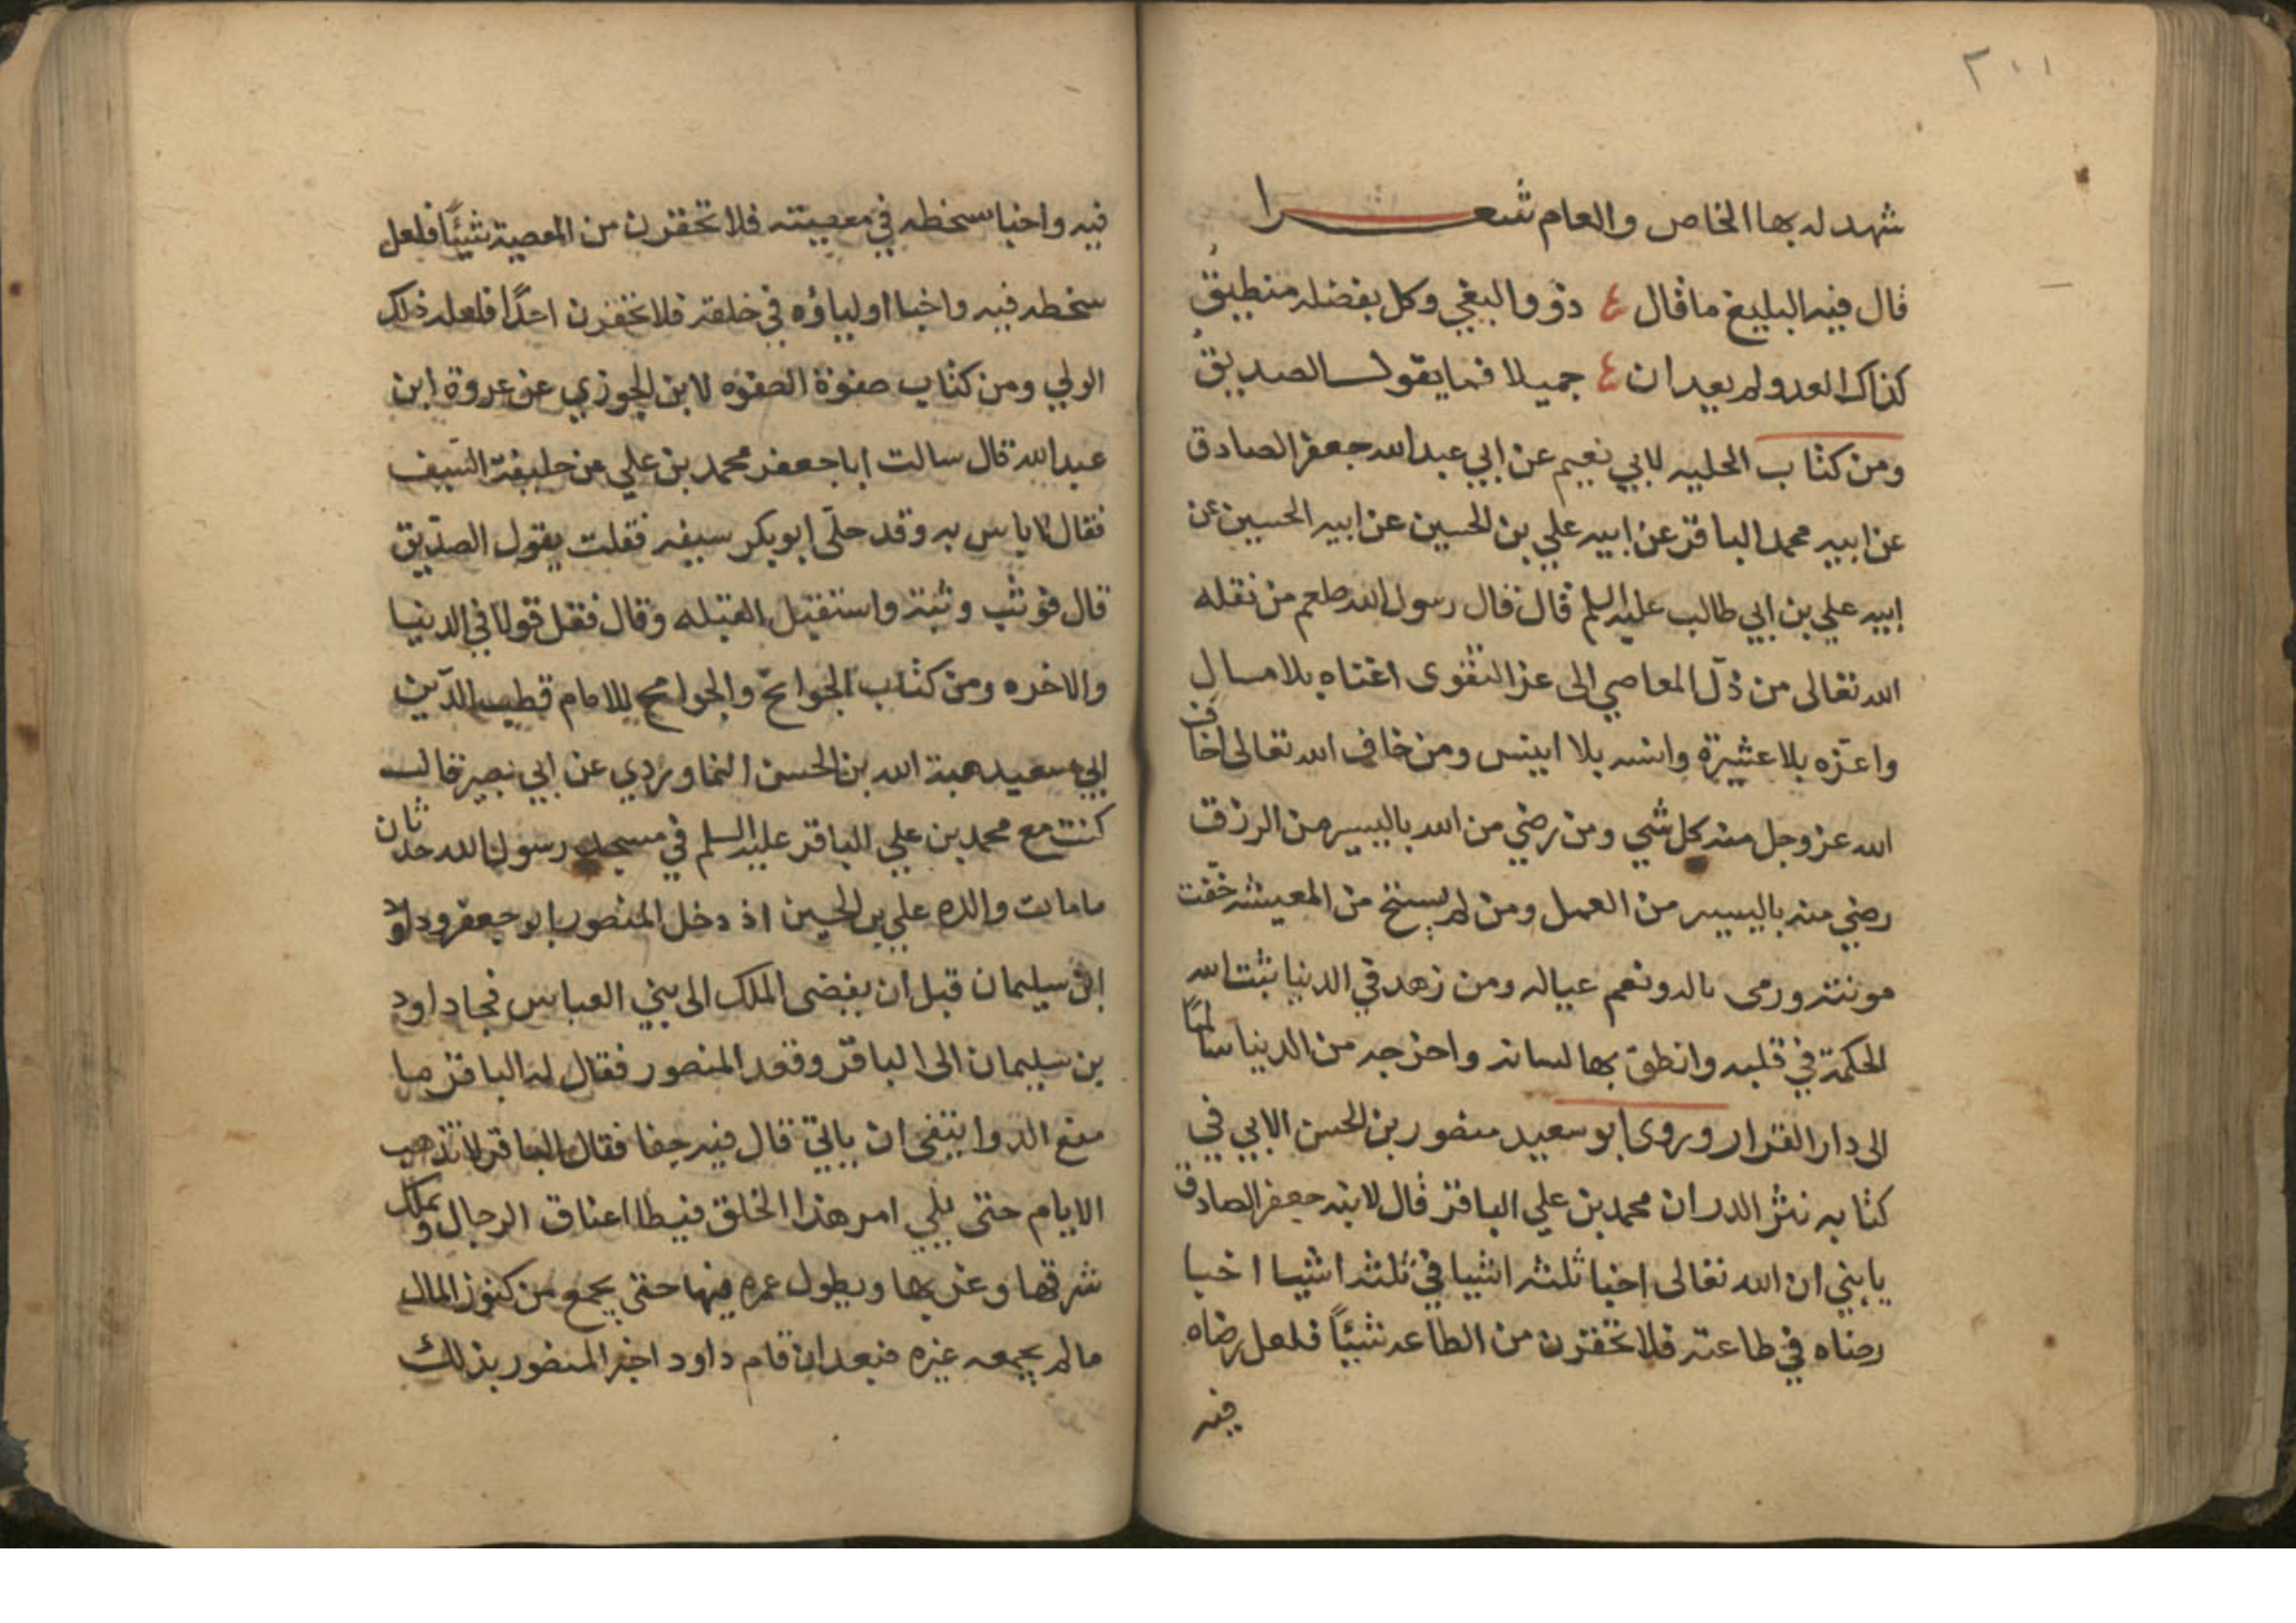 ٢٠١١
شهد له بها الخاص والعام شعرا
قال فيه البليغ ما قال ع ذو والبغي وكل بفضله منطيق
كذاك العدو لم يعد ان ع جميلا فما يقول الصديق
ومن كتاب الحليه لابي نعيم عن ابي عبد الله جعفر الصادق
عن ابيه محمد الباقر عن ابيه علي بن الحسين عن ابيه الحسين عن
ابيه علي بن ابي طالب عليه السلم قال قال رسول الله صلعم من نقله
الله تعالى من ذل المعاصي الى عز التقوى اغناه بلا مال
واعزه بلا عشيرة وانسه بلا انيس ومن خاف الله تعالى اخاف
الله عز وجل منه كل شي ومن رضي من الله باليسير من الرزق
رضي منه باليسير من العمل ومن لم يستح من المعيشه خفت
مونته ورمى باله ونعم عياله ومن زهد في الدنيا ثبت الله
الحكمة في قلبه وانطق بها لسانه واخرجه من الدنيا سالمًا
الى دار القرار وروى ابو سعيد منصور بن الحسن الابي في
كتابه نثر الدر ان محمد بن علي الباقر قال لابنه جعفر الصادق
يا بني ان الله تعالى اخبا ثلثه اشيا في ثلثه اشيا اخبا
رضاه في طاعته فلا تحقرن من الطاعه شيئًا فلعل رضاه
فيه
فيه واخبا سخطه في معصيته فلا تحقرن من المعصية شيئًا فلعل
سخطه فيه واخبا اولياؤه في خلقه فلا تحقرن احدًا فلعله ذلك
الولي ومن كتاب صفوة الصفوه لابن الجوزي عن عروة ابن
عبد الله قال سالت ابا جعفر محمد بن علي عن حليفة السيف
فقال لا باس به وقد حلى ابو بكر سيفه فقلت يقول الصديق
قال فوثب وثبة واستقبل القبله وقال فقل قولا في الدنيا
والاخره ومن كتاب الجوائح والجوامح للامام قطب الدين
ابي سعيد هبة الله بن الحسن النماوردي عن ابي بصير قال
كنت مع محمد بن علي الباقر عليه السلم في مسجد رسول الله حدثان
ما مات والده علي بن الحسين اذ دخل المنصور ابو جعفر وداود
ابن سليمان قبل ان يفضى الملك الى بني العباس فجا داود
بن سليمان الى الباقر وقعد المنصور فقال له الباقر ما
منع الدوابيقي ان ياتي قال فيه جفا فقال الباقر لا تذهب
الايام حتى يلي امر هذا الخلق فيطا اعناق الرجال ويملك
شرقها وغربها ويطول عمره فيها حتى يجمع من كنوز المال
ما لم يجمعه غيره فبعد ان قام داود اخبر المنصور بذلك